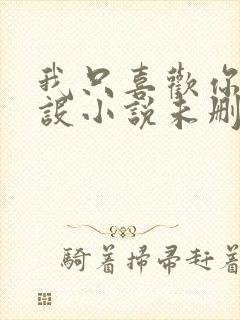 我只喜歡你
設小說未刪
騎着掃帚赶着